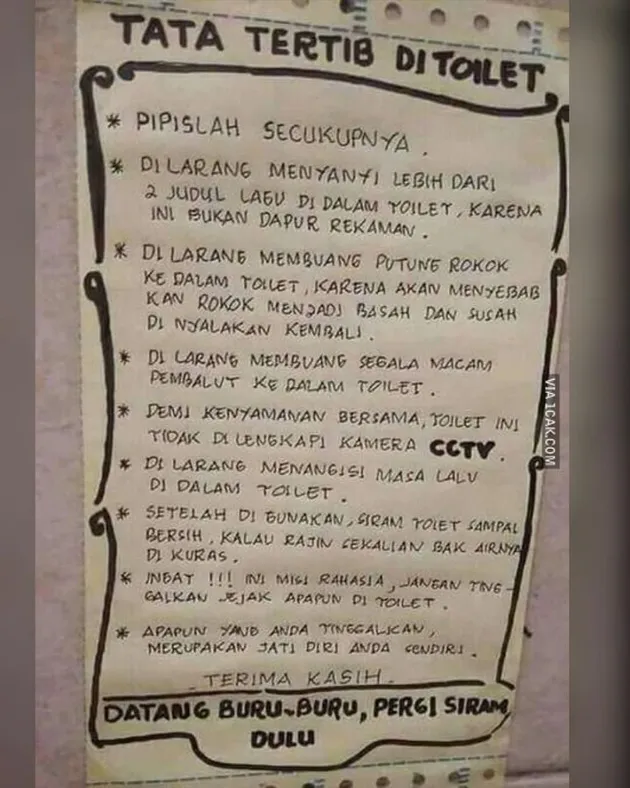 TATA TERTIB DI TOILET
* PIPISLAH SECUKUPNYA.
* DI LARANG MENYANYI LEBIH DARI
2 JUDUL LAGU DI DALAM TOILET, KARENA
INI BUKAN DAPUR REKAMAN.
* DI LARANG MEMBUANG PUTUNG ROKOK
KE DALAM TOILET, KARENA AKAN MENYEBAB
KAN ROKOK MENJADI BASAH DAN SUSAH
DI NYALAKAN KEMBALI.
* DI LARANG MEMBUANG SEGALA MACAM
PEMBALUT KE DALAM TOILET.
* DEMI KENYAMANAN BERSAMA, TOILET INI
TIDAK DI LENGKAPI KAMERA CCTV.
* DI LARANG MENANGISI MASA LALU
DI DALAM TOILET.
* SETELAH DI GUNAKAN, SIRAM TOLET SAMPAI
BERSIH, KALAU RAJIN SEKALIAN BAK AIRNYA
DI KURAS.
* INGAT !!! INI MISI RAHASIA, JANGAN TING-
GALKAN JEJAK APAPUN DI TOILET.
* APAPUN YANG ANDA TINGGALKAN,
MERUPAKAN JATI DIRI ANDA SENDIRI.
- TERIMA KASIH -
DATANG BURU-BURU, PERGI SIRAM
DULU
VIA 1CAK.COM